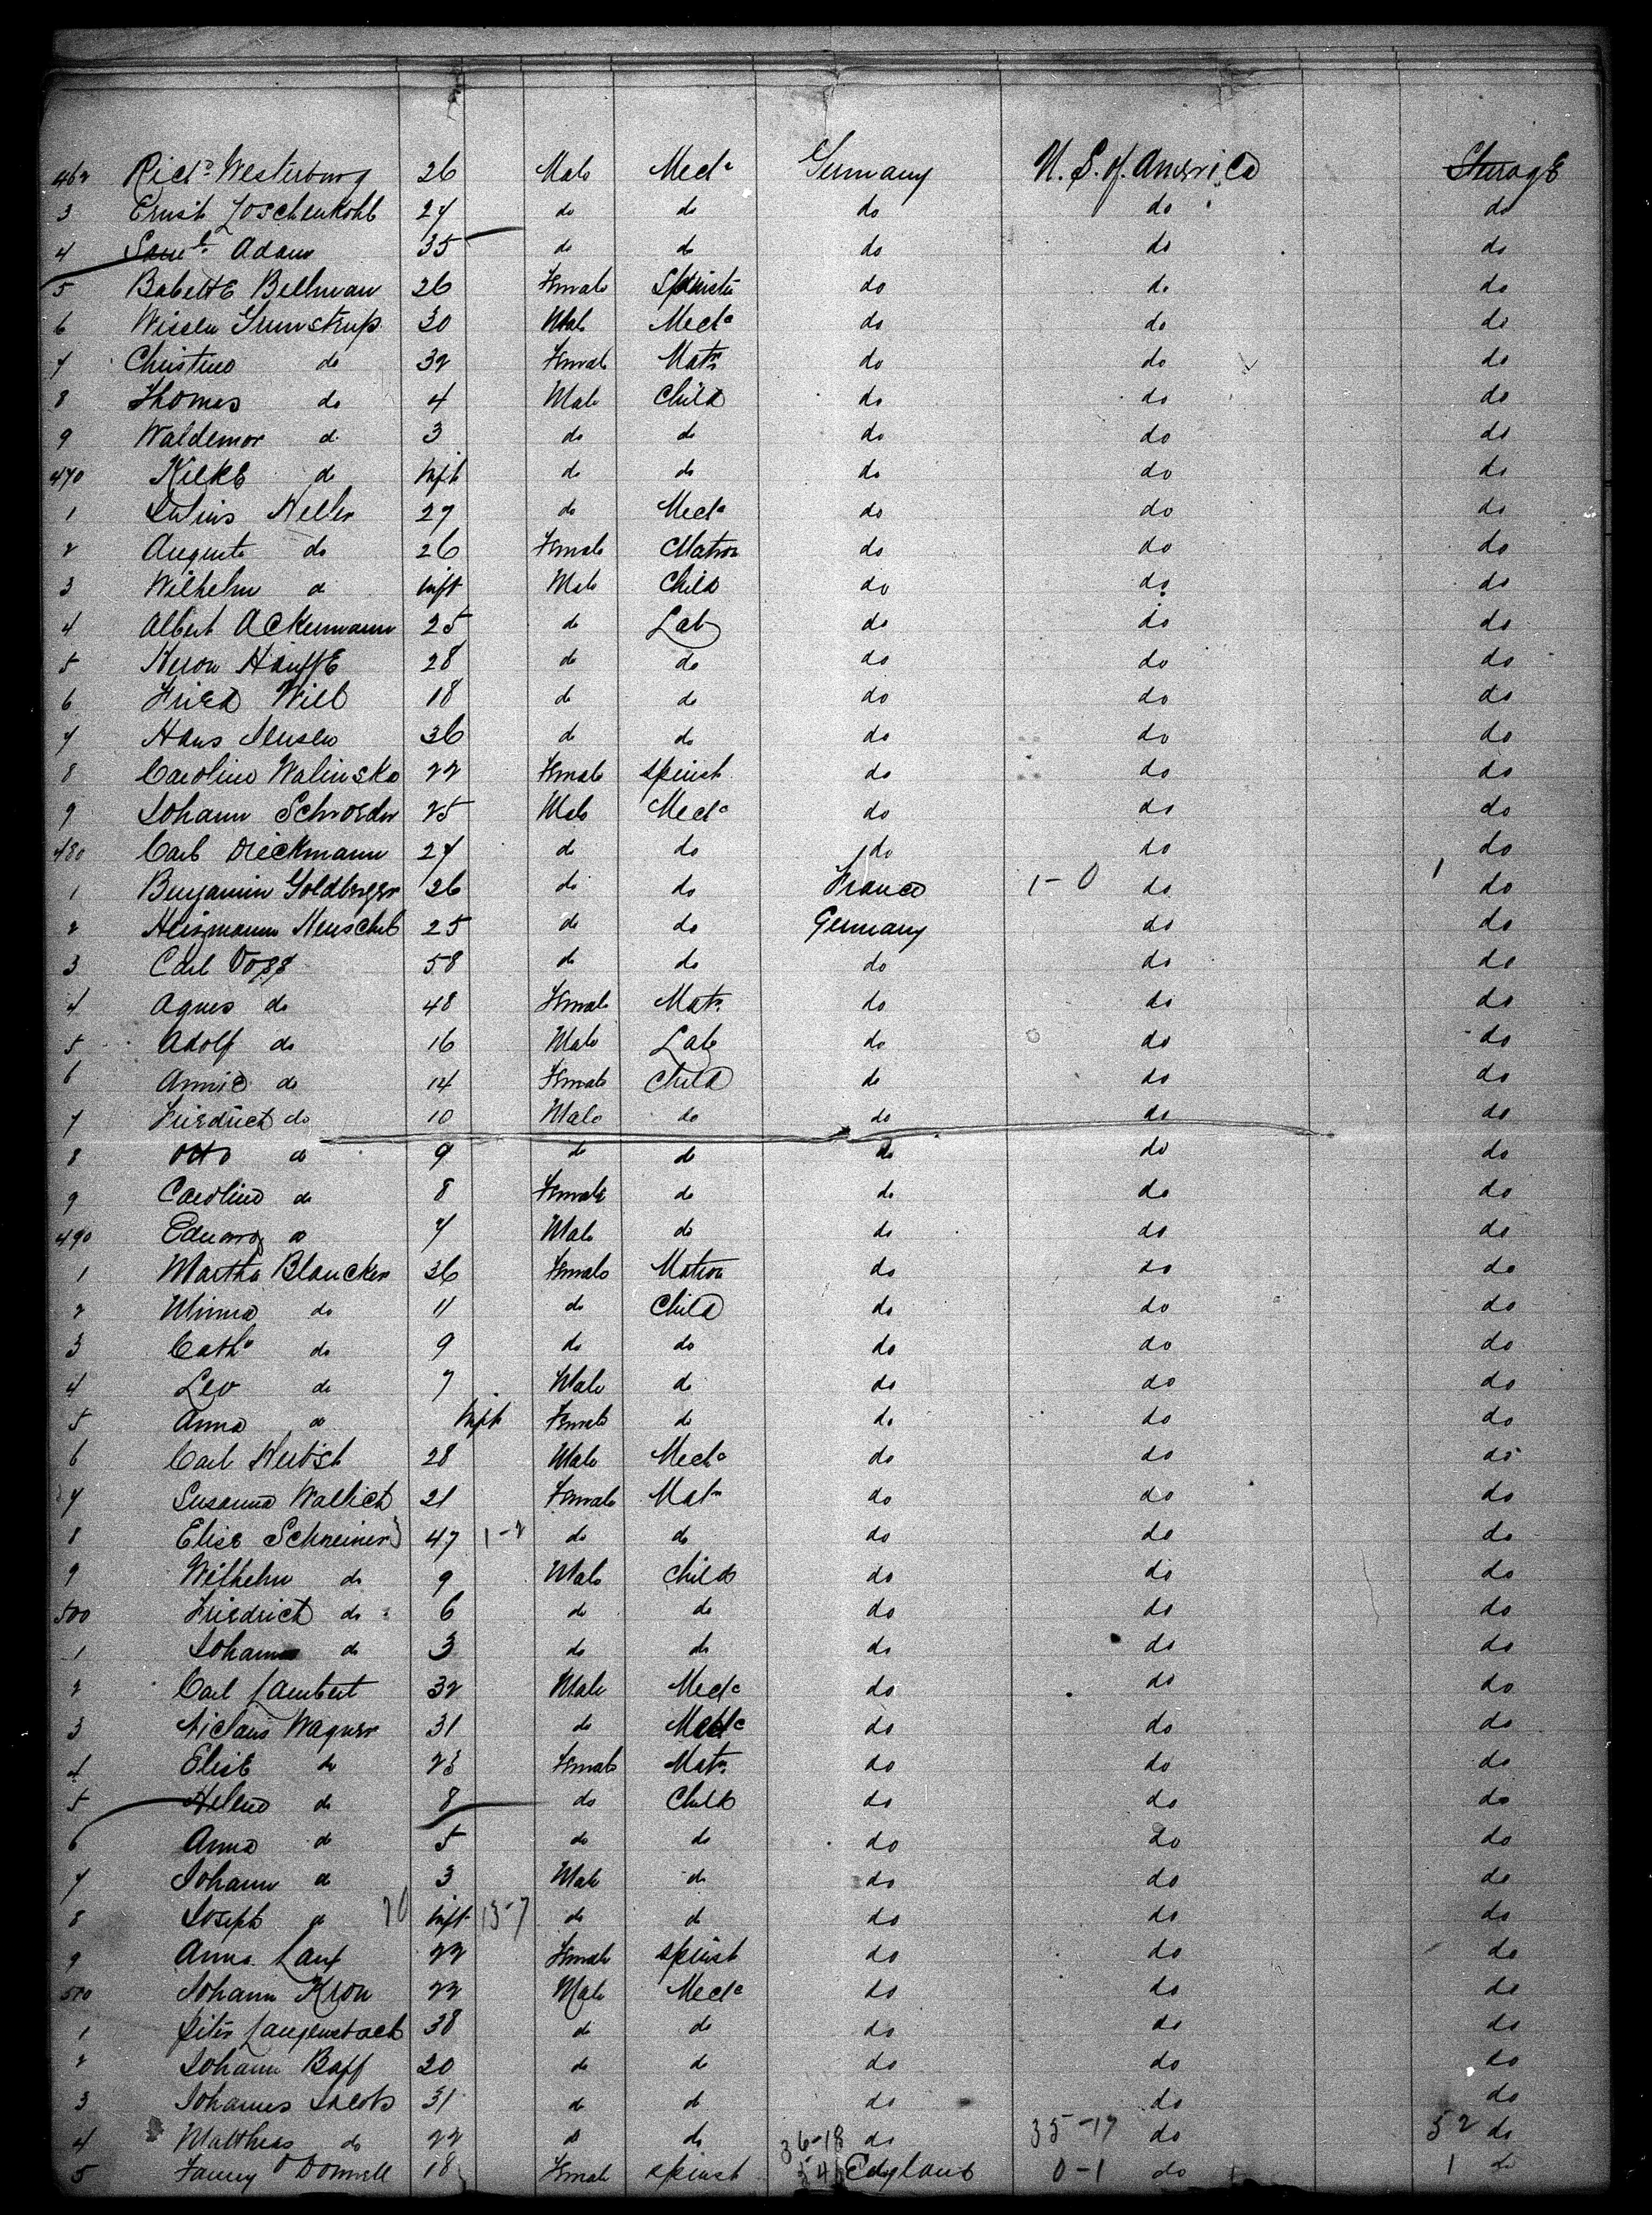 462 Richd Westerburg 26 Male Mecha Germany U. S. of America Steerage
3 Ernst Loschenkohl 27 do do do do do
4 Saml Adam 35 do do do do do
5 Babette Bellman 26 Female Spinster do do do
6 Grumstrup 30 Male Mecha do do do
7 Christine do 32 Female Matn do do do
8 Thomas do 4 Male Child do do do
9 Waldemar do 3 do do do do do
470 do Inft do do do do do
1 Julius Heller 27 do Mecha do do do
2 Auguste do 26 Female Matron do do do
3 Wilhelm do Inft Male Child do do do
4 Albert Ackermann 25 do Lab do do do
5 28 do do do do do
6 Fried Will 18 do do do do do
7 Hans Jensen 36 do do do do do
8 Caroline Walinska 22 Female Spinst do do do
9 Johann Schroeder 25 Male Mecha do do do
480 Carl Dieckmann 27 do do do do do
1 Benjamin Goldberger 26 do do France 1-0 do 1 do
2 25 do do Germany do do
3 Carl Voss 58 do do do do do
4 Agnes do 48 Female Matn do do do
5 Adolf do 16 Male Lab do do do
6 Annie do 14 Female Child do do do
7 Friedrich do 10 Male do do do do
8 Otto do 9 do do do do do
9 Caroline do 8 Female do do do do
490 Eduard do 7 Male do do do do
1 Martha Blancker 36 Female Matron do do do
2 Minna do 11 do Child do do do
3 Catha do 9 do do do do do
4 Leo do 7 Male do do do do
5 Anna do Inft Female do do do do
6 Carl Herbst 28 Male Mecha do do do
7 Susanna Wallich 21 Female Matn do do do
8 Elise Schreiner 47 1-2 do do do do do
9 Wilhelm do 9 Male Child do do do
500 Friedrich do 6 do do do do do
1 Johann do 3 do do do do do
2 Carl Lambert 32 Male Mecha do do do
3 Niclaus Wagner 31 do Mecha do do do
4 Elise do 23 Female Matn do do do
5 Helene do 8 do Child do do do
6 Anna do 5 do do do do do
7 Johann do 3 Male do do do do
8 Joseph do 20 Inft 13-7 do do do do do
9 Anna 22 Female Spinst do do do
510 Johann Kron 22 Male Mecha do do do
1 Peter Langenbach 38 do do do do do
2 Johann 20 do do do do do
3 Johannes Jacobs 31 do do do do do
4 Matthias do 22 do do 36-18 do 35-17 do 52 do
5 Fanny O Donnell 18 Female Spinst 54 England 0-1 do 1 do